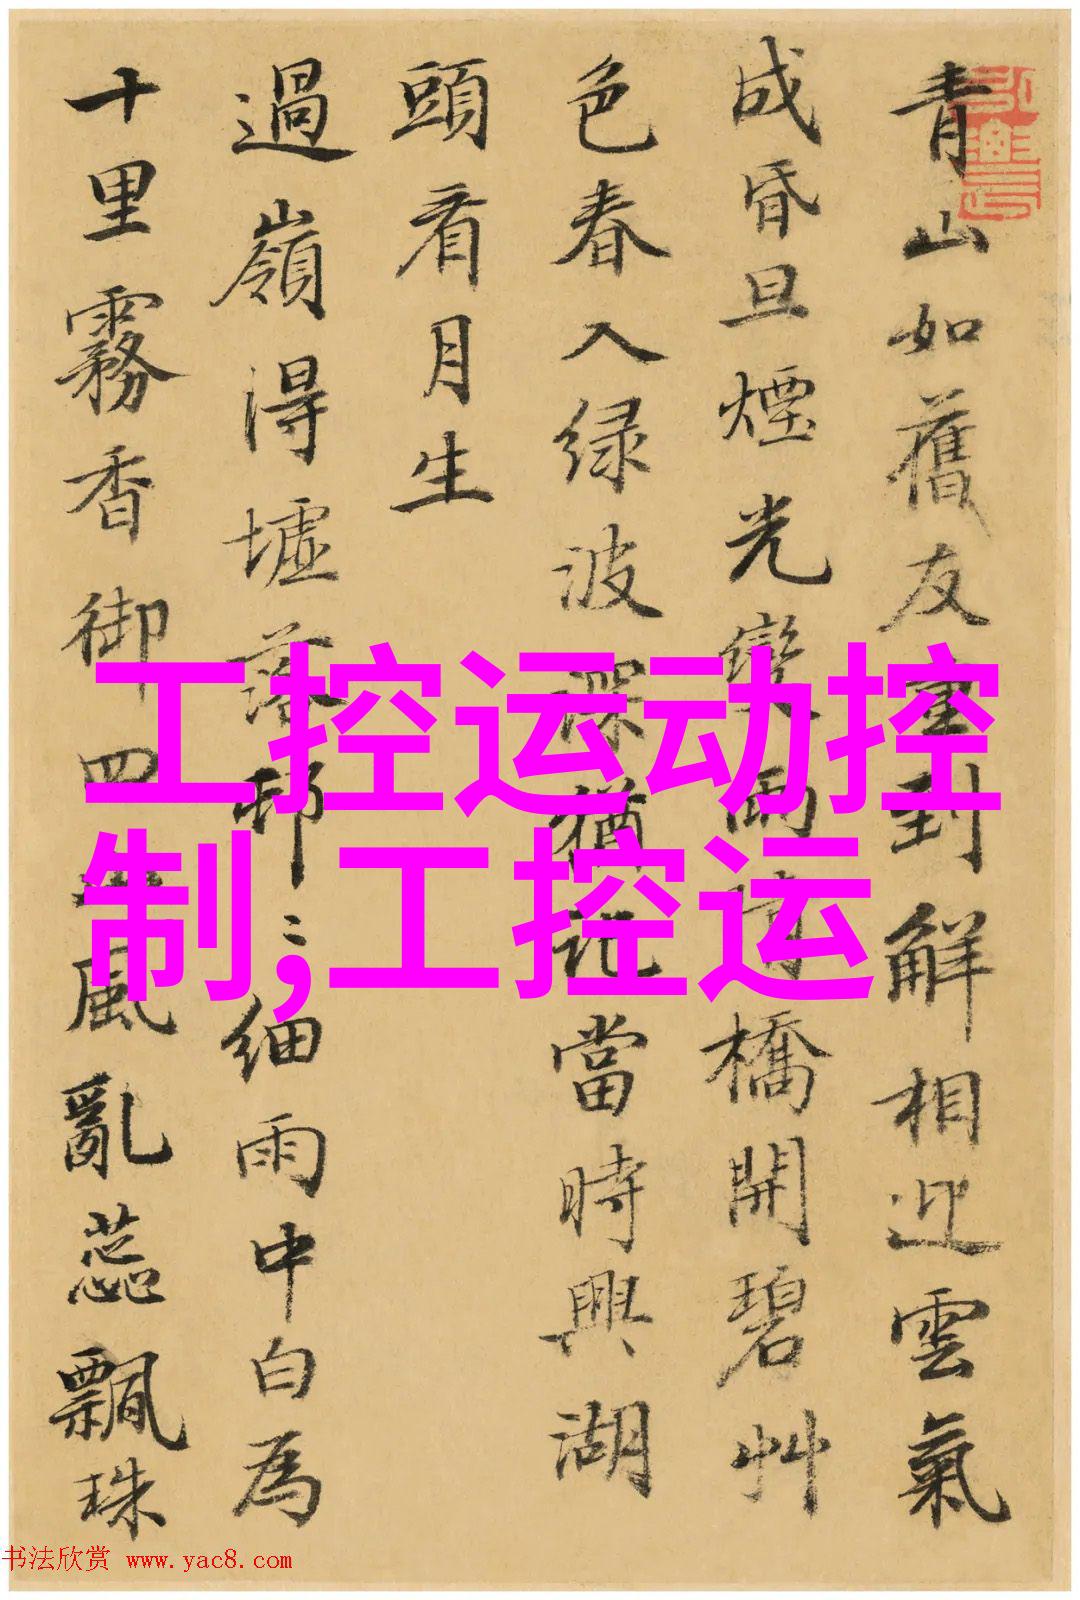 青山如舊友重到解相迎雲氣
成昏旦煙光變雨晴橋開碧艸
色春入绿波深猶記當時興湖
頭看月生
過嶺得墟落邨〻細雨中白為
十里霧香御四山風亂蕊飄珠
工控运动控
制;工控运
书法欣赏 www.yac8.com